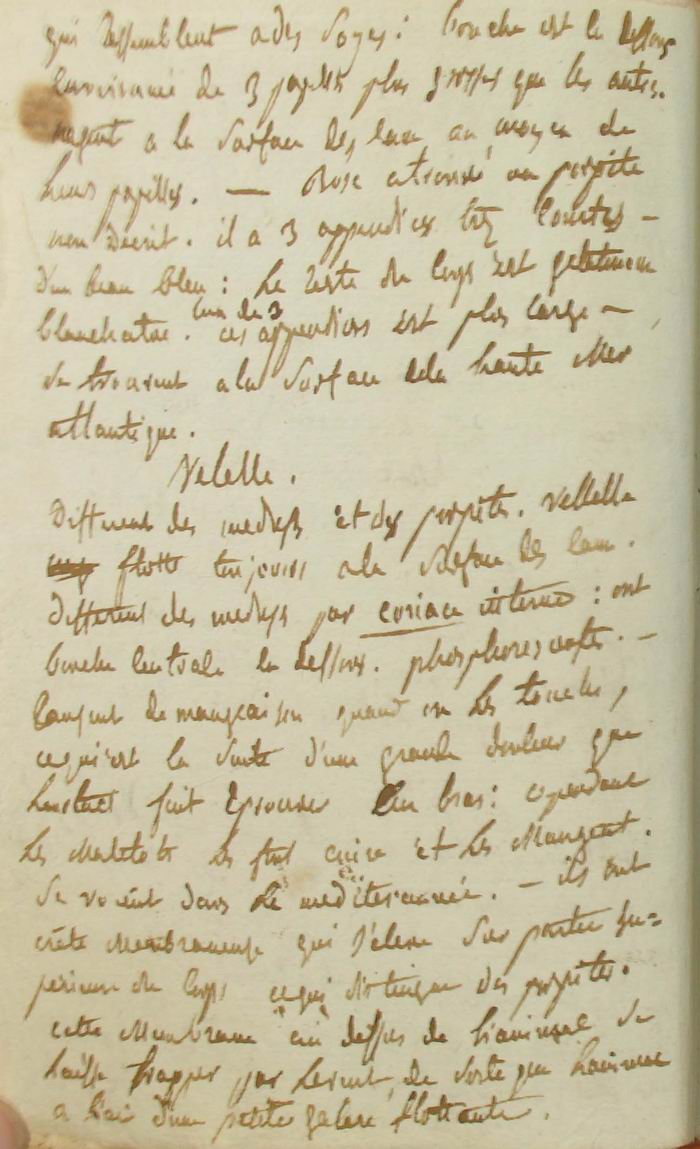 qui ressemblent a des soyes : bouche est en dessous
environné de 3 papilles plus grosses que les autres.
nagent a la surface des eaux au moyen de
leurs papilles. — Bosc a trouvé un porpite
non decrit. il a 3 appendices très courtes —
d'un beau bleu : Le reste du corps est gelatineux
blanchatre. l'un de 3 ces appendices est plus large —
se trouvent a la surface de la haute Mer
atlantique.
Velelle.
Different des meduses et des porpites. vellelle
flotte toujours a la surface des eaux.
different des meduses par coriace interne : ont
bouche centrale en dessous. phosphorescentes. —
causent demangeaison quand on les touche,
ce qui est la suite d'une grande douleur que
font eprouver leur bras : cependant
les Matelots les font cuire et les Mangent.
se voient dans Le mediterannée. — ils ont
crête Membraneuse qui s'eleve sur partie su=
perieure du corps ce qui distingue des porpites.
cette Membrane au dessus de l'animal se
laisse frapper par le vent, de sorte que l'animal
a l'air d'une petite galere flottante.